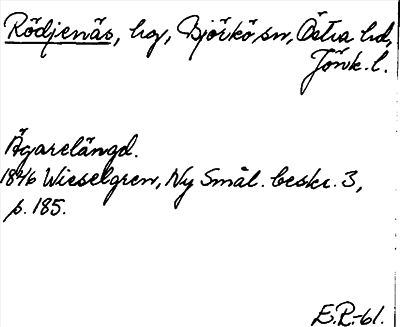 Rödjenäs, hg, Björkö sn, Östra hd,
Jönk. l.
Ägarelängd.
1846 Wieselgren, Ny Smål. beskr. 3,
p. 185.
E.R.-61.